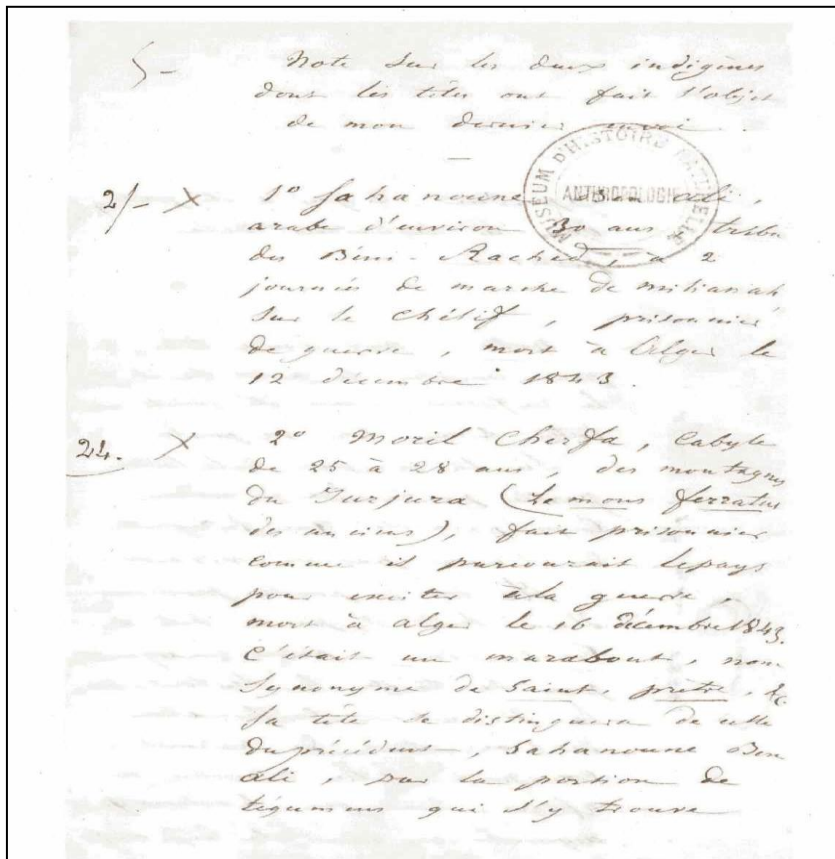 5-
Note sur les deux indigènes
dont les têtes ont fait l'objet
de mon dernier envoi.
MUSEUM D'HISTOIRE NATURELLE
ANTHROPOLOGIE
2/- X 1° Sahanoune Ben ali,
arabe d'environ 30 ans, tribu
des Béni-Rached, à 2
journées de marche de milianah
sur le Chélif, prisonnier
de guerre, mort à Alger le
12 décembre 1843.
22. X 2° Moril Cherfa, Cabyle
de 25 à 28 ans, des montagnes
du Jurjura (le mons ferratus
des anciens), fait prisonnier
comme il parcourait le pays
pour exciter à la guerre,
mort à alger le 16 décembre 1843.
C'était un marabout, nom
synonyme de saint, prêtre, &c.
Sa tête se distinguera de celle
du précédent, Sahanoune Ben
ali, par la portion de
tégumens qui s'y trouve